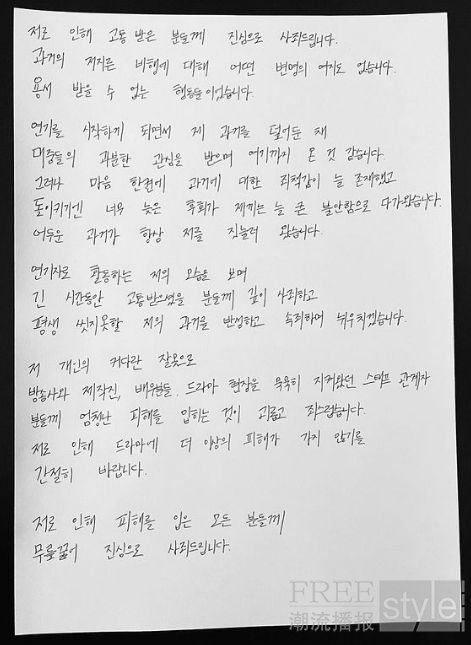 저로 인해 고통 받은 분들께 진심으로 사죄드립니다.
과거의 저지른 비행에 대해 어떤 변명의 여지도 없습니다.
용서 받을 수 없는 행동들이었습니다.
연기를 시작하게 되면서 제 과거를 덮어둔 채
대중들의 과분한 관심을 받으며 여기까지 온 것 같습니다
그러나 마음 한편에 과거에 대한 죄책감이 늘 존재했고
돌이키기엔 너무 늦은 후회가 제게는 늘 큰 불안함으로 다가왔습니다.
어두운 과거가 항상 저를 짓눌러 왔습니다.
연기자로 활동하는 저의 모습을 보며
긴 시간동안 고통받으셨을 분들께 깊이 사죄하고
평생 씻지못할 저의 과거를 반성하고 속죄하며 뉘우치겠습니다.
저 개인의 커다란 잘못으로
방송사와 제작진, 배우분들, 드라마 현장을 묵묵히 지켜왔던 스태프 관계자
분들께 엄청난 피해를 입히는 것이 괴롭고 죄스럽습니다.
저로 인해 드라마에 더 이상의 피해가 가지 않기를
간절히 바랍니다.
저로 인해 피해를 입은 모든 분들께
무릎꿇어 진심으로 사죄드립니다.
FREE style
潮流播报